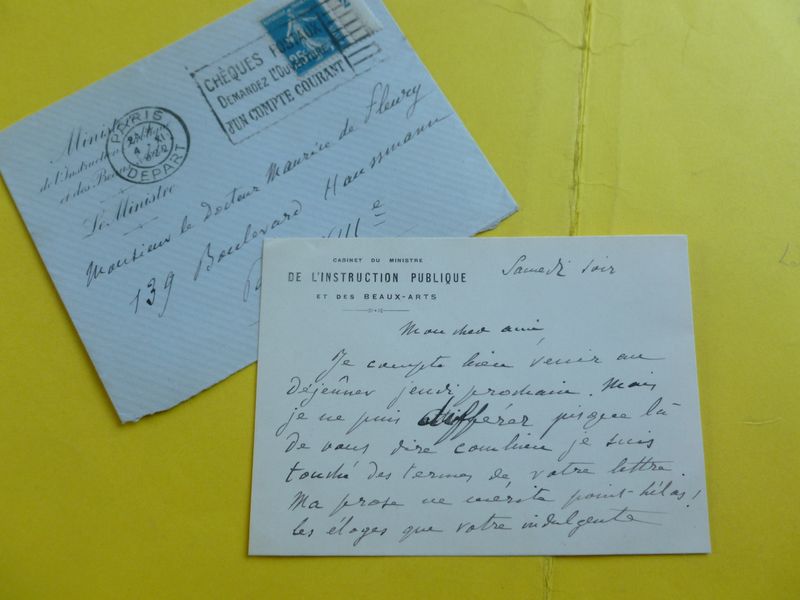 CHÈQUES POSTAUX
DEMANDEZ L'OUVERTURE
D'UN COMPTE COURANT
PARIS
DÉPART
Ministère
de l'Instruction
et des Beaux
Le Ministre
Monsieur le Docteur Maurice de Fleury
139 Boulevard Haussmann
VIIIe
CABINET DU MINISTRE
DE L'INSTRUCTION PUBLIQUE
ET DES BEAUX-ARTS
Samedi soir
Mon cher ami
Je compte bien venir au
déjeûner jeudi prochain. Mais
je ne puis différer jusque là
de vous dire combien je suis
touché des termes de votre lettre.
Ma prose ne mérite point hélas!
les éloges que votre indulgente